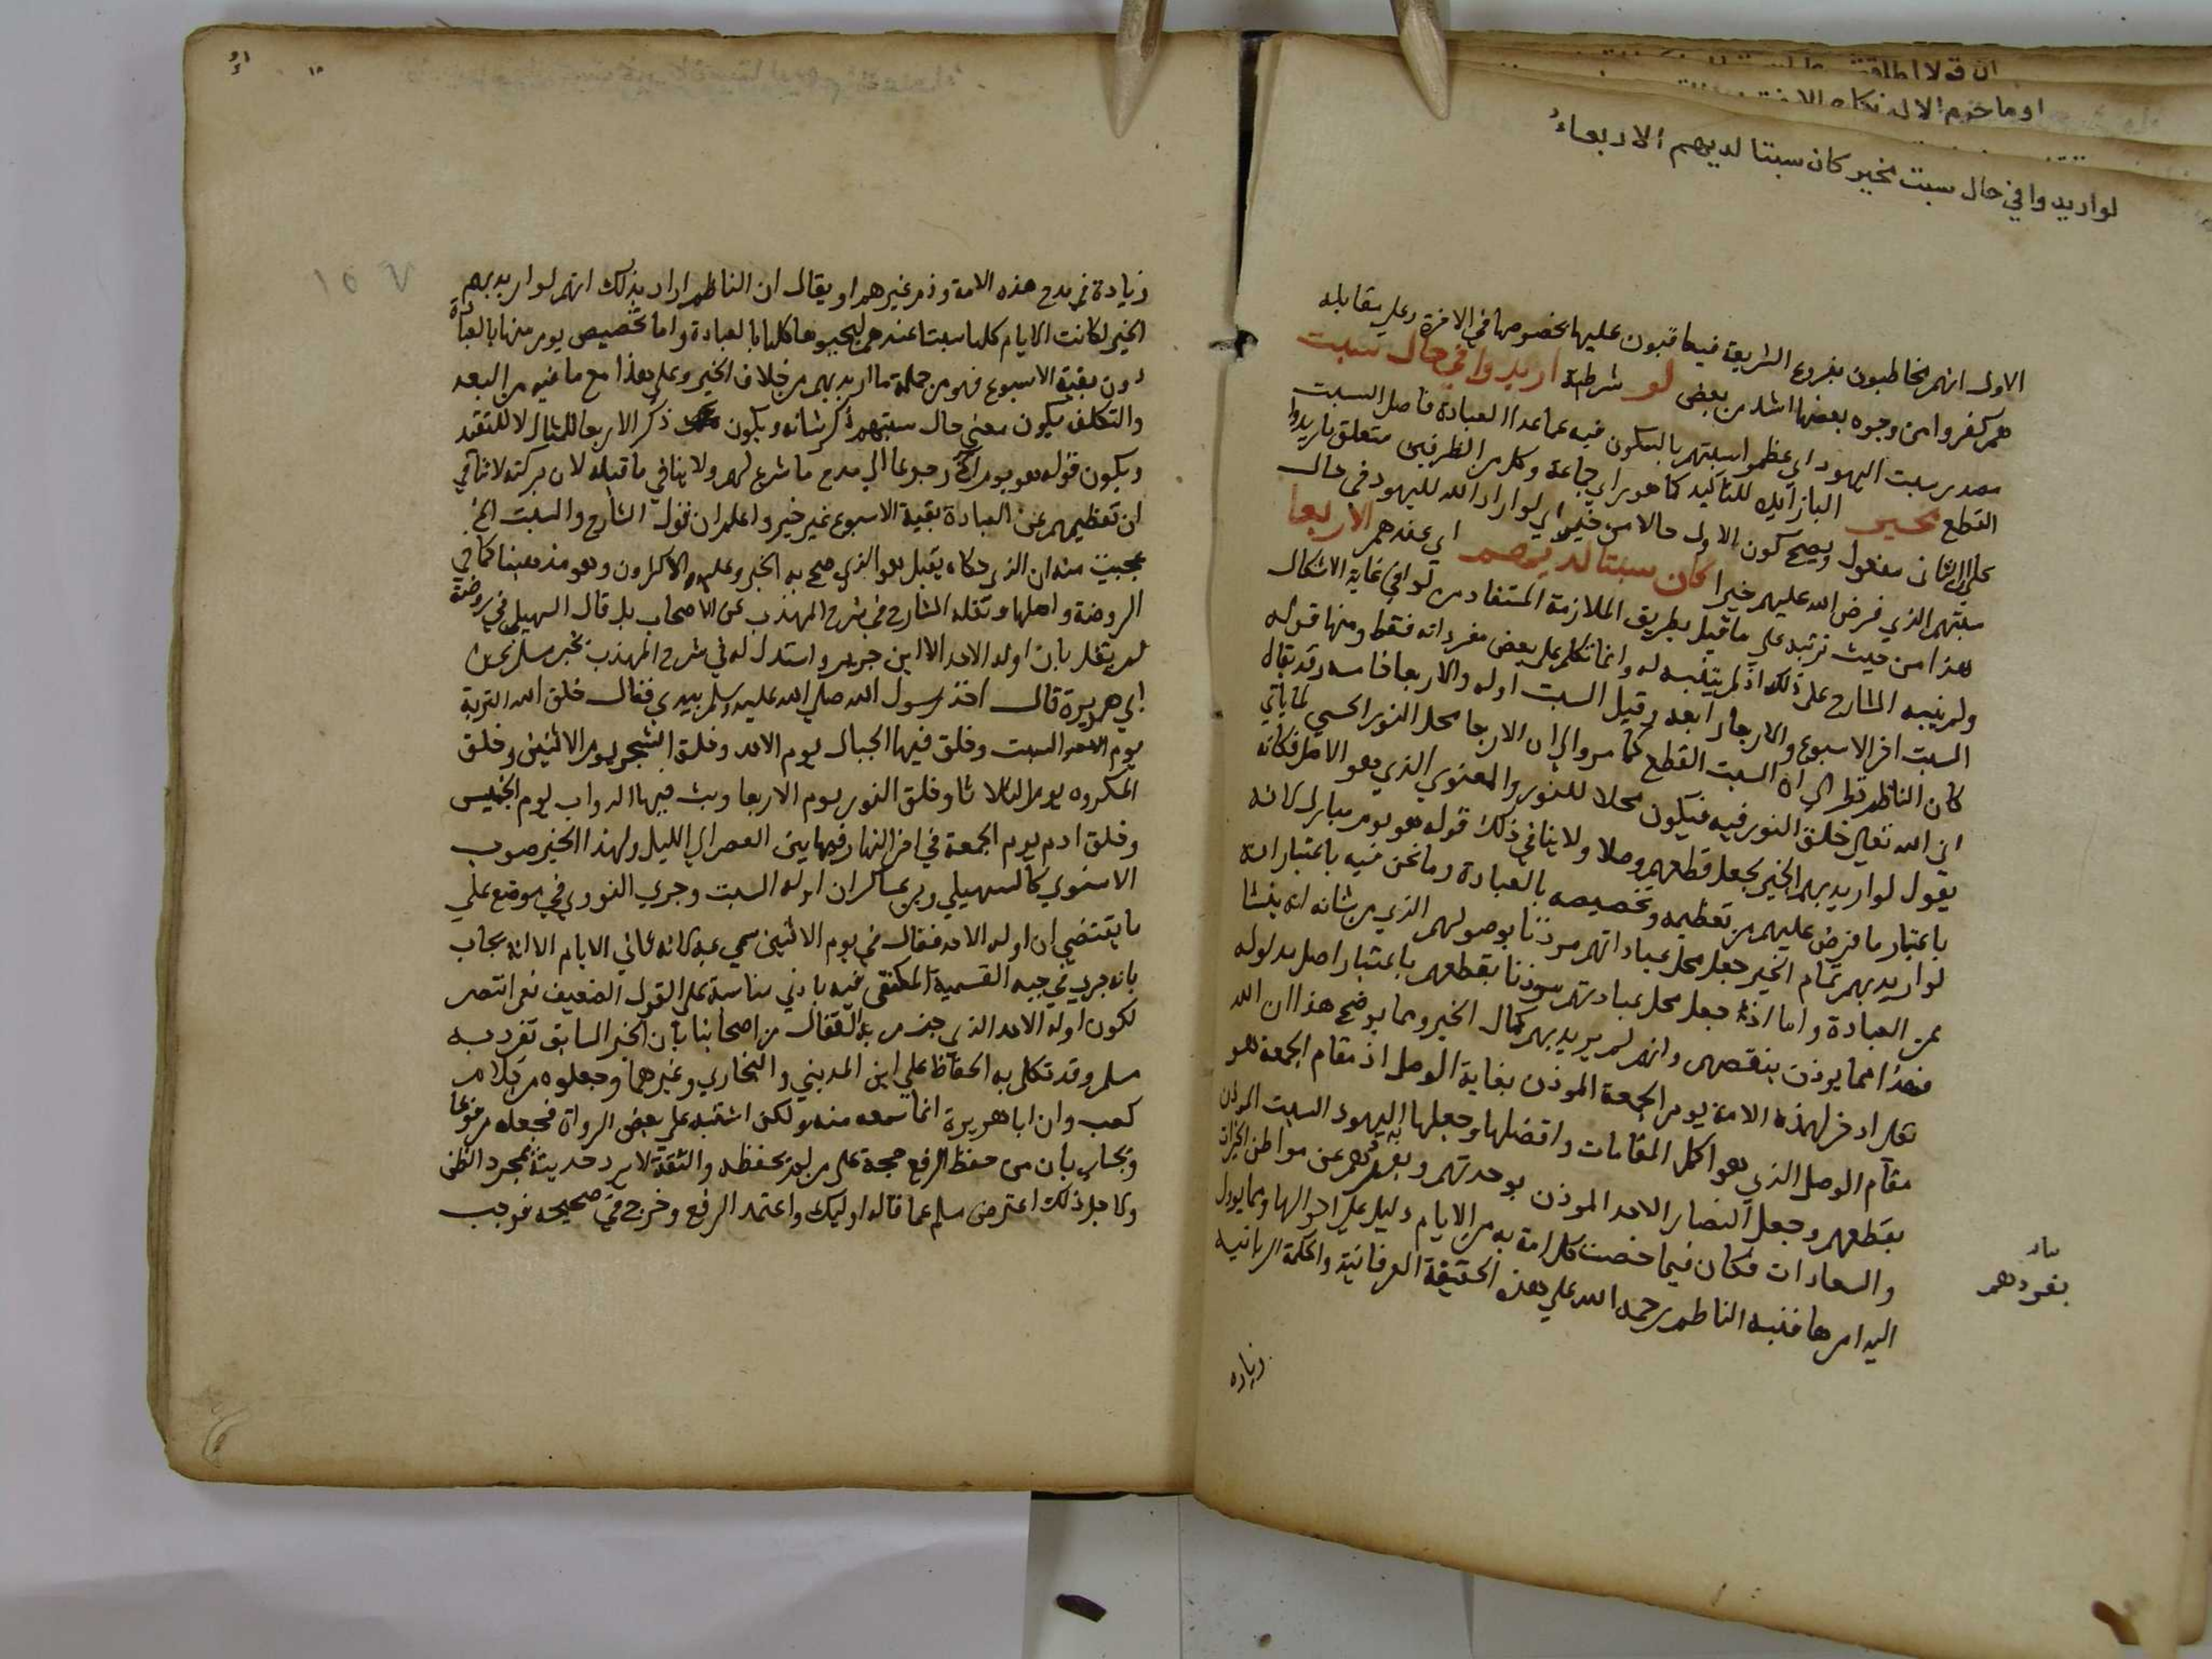 لو اريدوا في حال سبت بخير كان سبتا لديهم الاربعاءُ
الاول انهم مخاطبون بفروع الشريعة فيعاقبون عليها بخصوصها في الاخرة وعلى مقابله
هم كفروا من وجوه بعضها اشد من بعض لو شرطية اريدوا في حال سبت
مصدر سبت اليهود اي عظموا سبتهم بالسكون فيه عما عدا العبادة فاصل السبت
القطع بخير البا زايدة للتاكيد كما هو راي جماعة وكل من الظرفين متعلق باريدوا
على الثاني مفعول ويصح كون الاول حالا من خير اي لو اراد الله لليهود في حال
سبتهم الذي فرض الله عليهم خيرا كان سبتا لديهم اي عندهم الاربعا
هذا من حيث ترتبه على ما قبل بطريق الملازمة المستفاد من لو في غاية الاشكال
ولم ينبه الشارح على ذلك اذ لم يتنبه له وانما تكلم على بعض مفرداته فقط ومنها قوله
السبت اخر الاسبوع والاربعا رابعه وقيل السبت اوله والاربعا خامسه وقد يقال
كان الناظم نظر الى ان السبت القطع كما مر والى ان الاربعا محل النور الحسي لما ياتي
ان الله تعالى خلق النور فيه فيكون محلا للنور والمعنوي الذي هو الاصل فكانه
يقول لو اريد بهم الخير لجعل قطعهم وصلا ولا ينافي ذلك قوله هو يوم مبارك لانه
باعتبار ما فرض عليهم من تعظيمه وتخصيصه بالعبادة وما نحن فيه باعتبار انه
لو اريد بهم تمام الخير جعل محل عباداتهم موذنا بوصولهم الذي من شانه ان ينشا
عن العبادة واما اذا جعل محل عبادتهم موذنا بقطعهم باعتبار اصل مدلوله
فهذا مما يوذن بنقصهم وانه لم يريد بهم كمال الخير ومما يوضح هذا ان الله
تعالى ادخر لهذه الامة يوم الجمعة الموذن بغاية الوصل اذ مقام الجمعة هو
مقام الوصل الذي هو اكمل المقامات وافضلها وجعلها اليهود السبت الموذن
بقطعهم وجعل النصارا الاحد الموذن بوحدتهم وبعدهم عن مواطن الخيرات
والسعادات فكان فيما خصت كل امة به من الايام دليل على احوالها وما يوول
اليه امرها فنبه الناظم رحمه الله على هذه الحقيقة العرفانية والحكمة الربانيه
بيان
بفردهم
زياده
زيادة في مدح هذه الامة وذم غيرهم او يقال ان الناظم اراد بذلك انهم لو اريد بهم
الخير لكانت الايام كلها سبتا عندهم ليحيوها كلها بالعبادة واما تخصيص يوم منها بالعبادة
دون بقية الاسبوع فهو من جملة ما اريد بهم من خلاف الخير وعلى هذا مع ما فيه من البعد
والتكلف يكون معنى حال سبتهم ذكر شانه ويكون ذكر الاربعا للمثال لا للتقيد
ويكون قوله هو يوم مبارك رجوعا الى مدح ما شرع لهم ولا ينافي ما قبله لان بركته لا تنافي
ان تعظيمهم عن العبادة بقية الاسبوع غير خير واعلم ان قول الشارح والسبت الخ
عجيب منه ان الذي حكاه بقيل هو الذي صح به الخبر وعليه الاكثرون وهو مذهبنا كما في
الروضة واصلها ونقله الشارح في شرح المهذب عن الاصحاب بل قال السهيلي في روضه
لم يقل بان اوله الاحد الا ابن جرير واستدل له في شرح المهذب بخبر مسلم عن
ابي هريرة قال اخذ رسول الله صلى الله عليه وسلم بيدي فقال خلق الله التربة
يوم السبت وخلق فيها الجبال يوم الاحد وخلق الشجر يوم الاثنين وخلق
المكروه يوم الثلاثا وخلق النور يوم الاربعا وبث فيها الدواب يوم الخميس
وخلق ادم يوم الجمعة في اخر النهار فيما بين العصر الى الليل ولهذا الخبر صوب
الاسنوي كالسهيلي وبن عساكر ان اوله السبت وجرى النووي في موضع على
ما يقتضي ان اوله الاحد فقال في يوم الاثنين سمي به لانه ثاني الايام الا انه يجاب
بانه جرى في جيبه القسمية المكتفى فيه بادنى مناسبة على القول الضعيف نعم انتصر
لكون اوله الاحد الذي جزم به القفال من اصحابنا بان الخبر السابق تفرد به
مسلم وقد تكلم به الحفاظ علي ابن المديني والبخاري وغيرهما وجعلوه من كلام
كعب وان ابا هريرة انما سمعه منه ولكن اشتبه على بعض الرواة فجعله مرفوعا
ويجاب بان من حفظ الرفع حجة على من لم يحفظه والثقة لا يرد حديثه بمجرد الظن
ولاجل ذلك اعترض مسلم عما قاله اوليك واعتمد الرفع وخرج في صحيحه فوجب